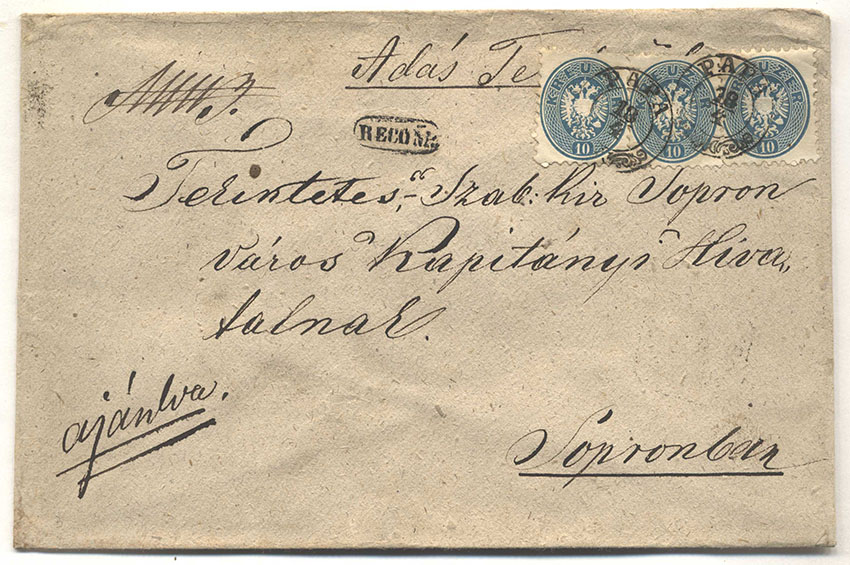 Adás
KREUZER
10
KREUZER
10
KREUZER
10
PÁPA
PÁPA
RECOM.
Tekintetes Szab: Kir Sopron
város Kapitányi Hiva„
talnak.
ajánlva.
Sopronban